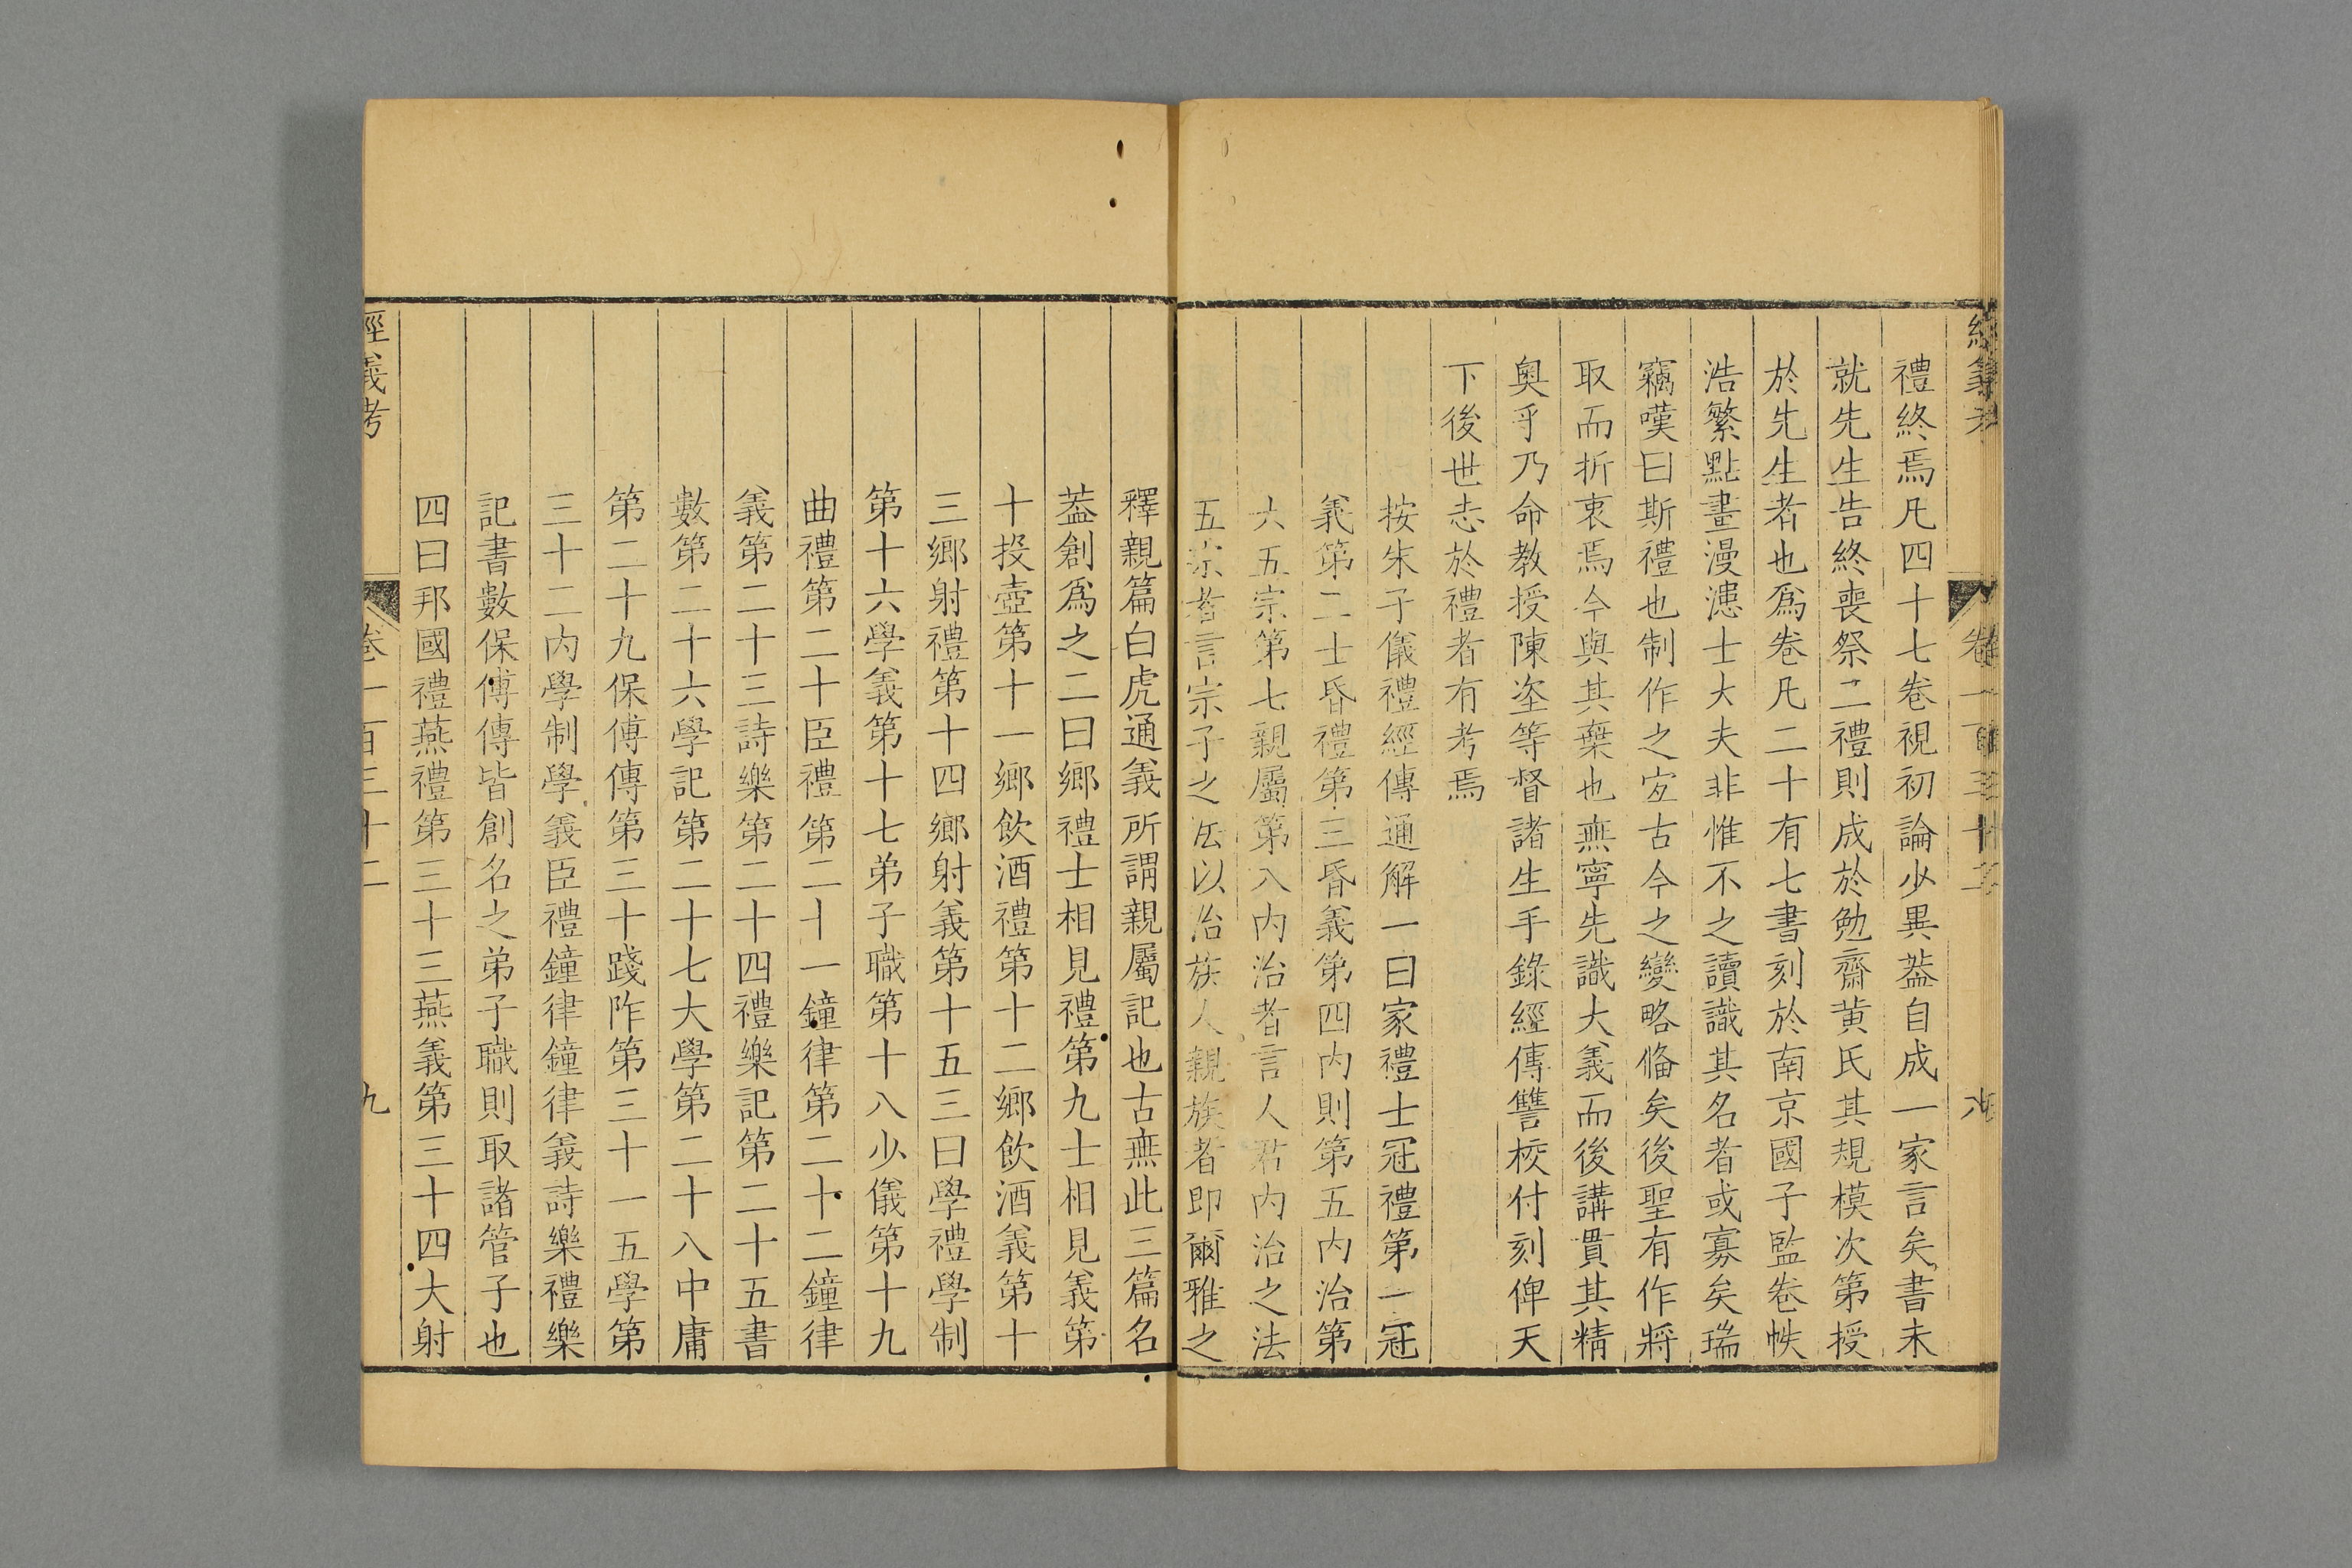 經義考 卷一百三十二 八
禮終焉凡四十七卷視初論少異葢自成一家言矣書未
就先生告終喪祭二禮則成於勉齋黄氏其規模次第授
於先生者也爲卷凡二十有七書刻於南京國子監卷帙
浩繁點畫漫漶士大夫非惟不之讀識其名者或寡矣瑞
竊嘆曰斯禮也制作之宐古今之變略偹矣後聖有作將
取而折衷焉今與其棄也無寧先識大義而後講貫其精
奥乎乃命教授陳垐等督諸生手錄經傳讐校付刻俾天
下後世志於禮者有考焉
按朱子儀禮經傳通解一曰家禮士冠禮第一冠
義第二士昏禮第三昏義第四内則第五内治第
六五宗第七親屬第八内治者言人君内治之法
五宗者言宗子之法以治族人親族者即爾雅之
釋親篇白虎通義所謂親屬記也古無此三篇名
葢創爲之二曰鄉禮士相見禮第九士相見義第
十投壺第十一鄉飲酒禮第十二鄉飲酒義第十
三鄉射禮第十四鄉射義第十五三曰學禮學制
第十六學義第十七弟子職第十八少儀第十九
曲禮第二十臣禮第二十一鐘律第二十二鐘律
義第二十三詩樂第二十四禮樂記第二十五書
數第二十六學記第二十七大學第二十八中庸
第二十九保傅傳第三十踐阼第三十一五學第
三十二内學制學義臣禮鐘律鐘律義詩樂禮樂
記書數保傅傳皆創名之弟子職則取諸管子也
四曰邦國禮燕禮第三十三燕義第三十四大射
經義考 卷一百三十二 九